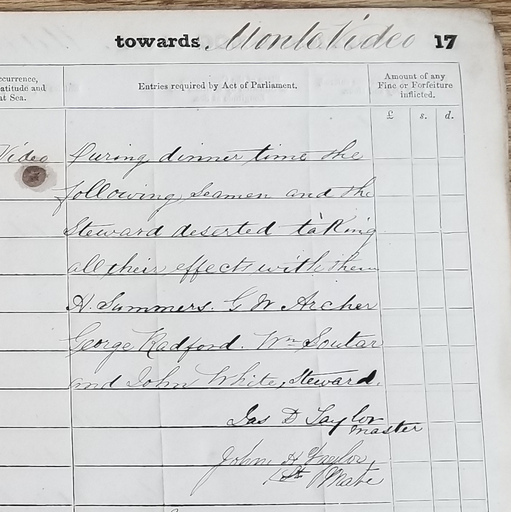 towards Monte Video 17
ccurrence,
atitude and
at Sea.
Entries required by Act of Parliament.
Amount of any
Fine or Forfeiture
inflicted.
£ s. d.
Video During dinner time the
following Seamen and the
Steward deserted taking
all their effects with them
H. Summers. G W Archer
George Radford. Wm Soutar
and John White, Steward.
Jas D Taylor
master
John H
Mate